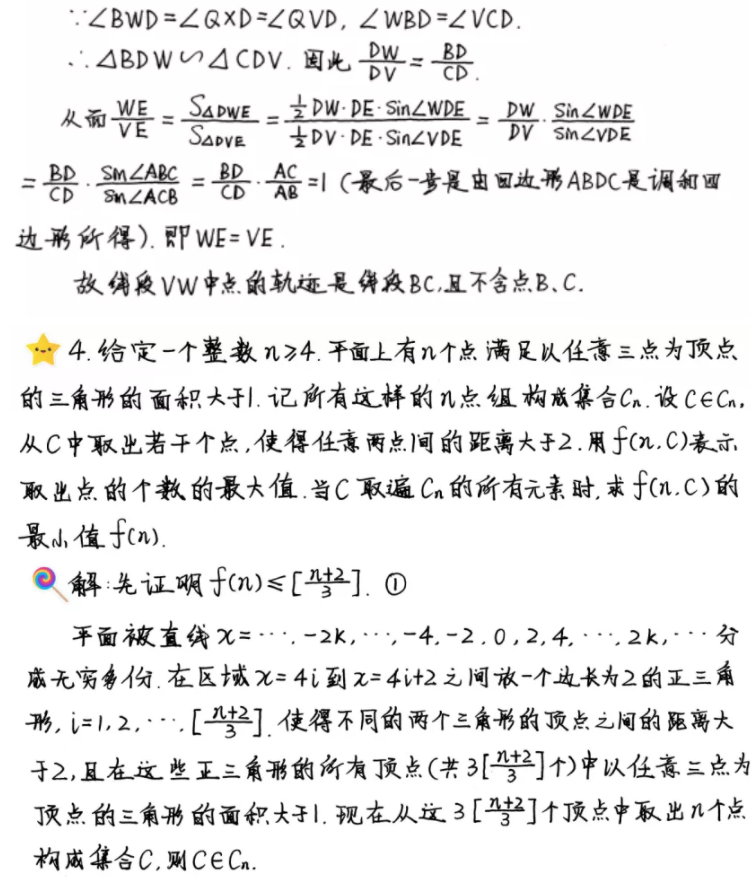 ∵∠BWD=∠QXD=∠QVD, ∠WBD=∠VCD.
∴△BDW∽△CDV. 因此 DW/DV = BD/CD.
从而 WE/VE = S△DWE/S△DVE = (1/2 DW·DE·Sin∠WDE)/(1/2 DV·DE·Sin∠VDE) = DW/DV · Sin∠WDE/Sin∠VDE
= BD/CD · Sin∠ABC/Sin∠ACB = BD/CD · AC/AB =1 (最后一步是由四边形ABDC是调和四
边形所得). 即WE=VE.
故线段VW中点的轨迹是线段BC,且不含点B、C.
4.给定一个整数n≥4.平面上有n个点满足以任意三点为顶点
的三角形的面积大于1.记所有这样的n点组构成集合Cn.设C∈Cn,
从C中取出若干个点,使得任意两点间的距离大于2.用f(n,C)表示
取出点的个数的最大值.当C取遍Cn的所有元素时,求f(n,C)的
最小值f(n).
解:先证明f(n)≤[(n+2)/3]. ①
平面被直线x=⋯,-2k,⋯,-4,-2,0,2,4,⋯,2k,⋯分
成无穷多份.在区域x=4i到x=4i+2之间放一个边长为2的正三角
形,i=1,2,⋯,[(n+2)/3].使得不同的两个三角形的顶点之间的距离大
于2,且在这些正三角形的所有顶点(共3[(n+2)/3]个)中以任意三点为
顶点的三角形的面积大于1.现在从这3[(n+2)/3]个顶点中取出n个点
构成集合C,则C∈Cn.